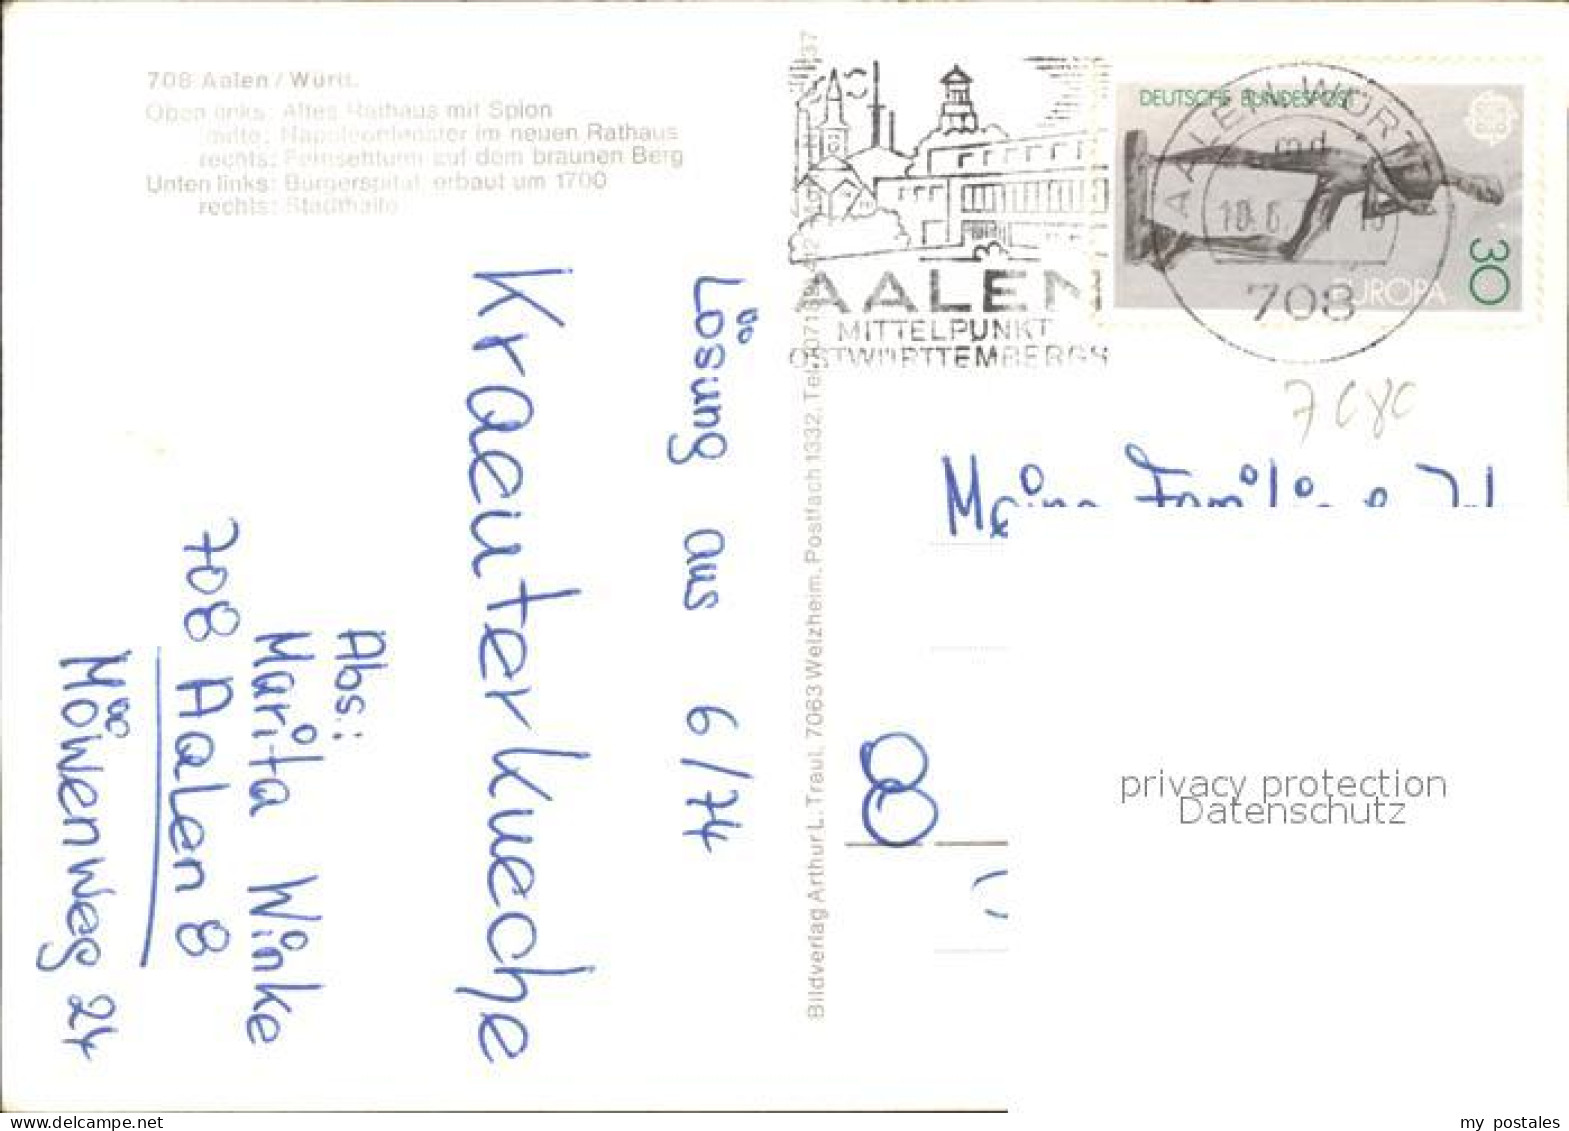 708 Aalen / Württ.
Oben links: Altes Rathaus mit Spion
mitte: Napoleonfenster im neuen Rathaus
rechts: Fernsehturm auf dem braunen Berg
Unten links: Bürgerspital, erbaut um 1700
rechts: Stadthalle
Lösung aus 6/74
Kraeuterkueche
Abs.:
Marita Winke
708 Aalen 8
Möwenweg 24
Bildverlag Arthur L. Traul, 7063 Welzheim, Postfach 1332, Tel.
AALEN
MITTELPUNKT
OSTWÜRTTEMBERGS
DEUTSCHE BUNDESPOST
EUROPA
30
AALEN WÜRTT
md
708
Meine Familie
8
privacy protection
Datenschutz
delcampe.net
my_postales